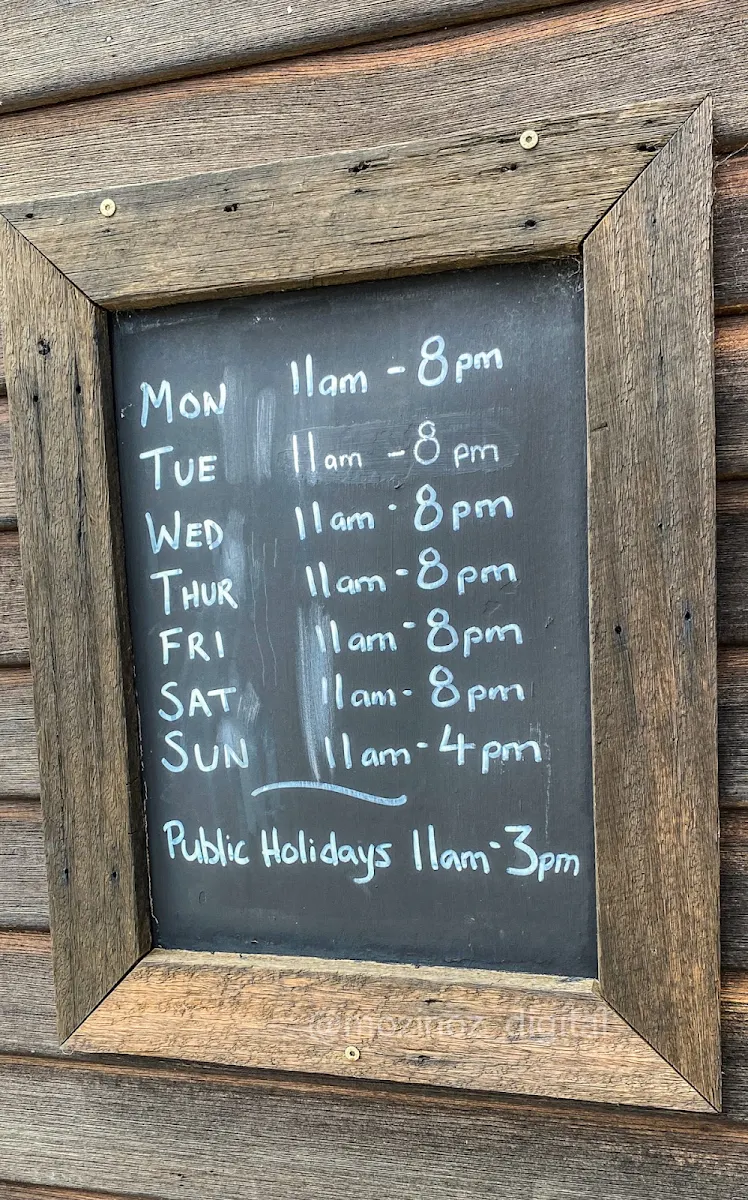 MON 11am - 8pm
TUE 11am - 8pm
WED 11am - 8pm
THUR 11am - 8pm
FRI 11am - 8pm
SAT 11am - 8pm
SUN 11am - 4pm
Public Holidays 11am - 3pm